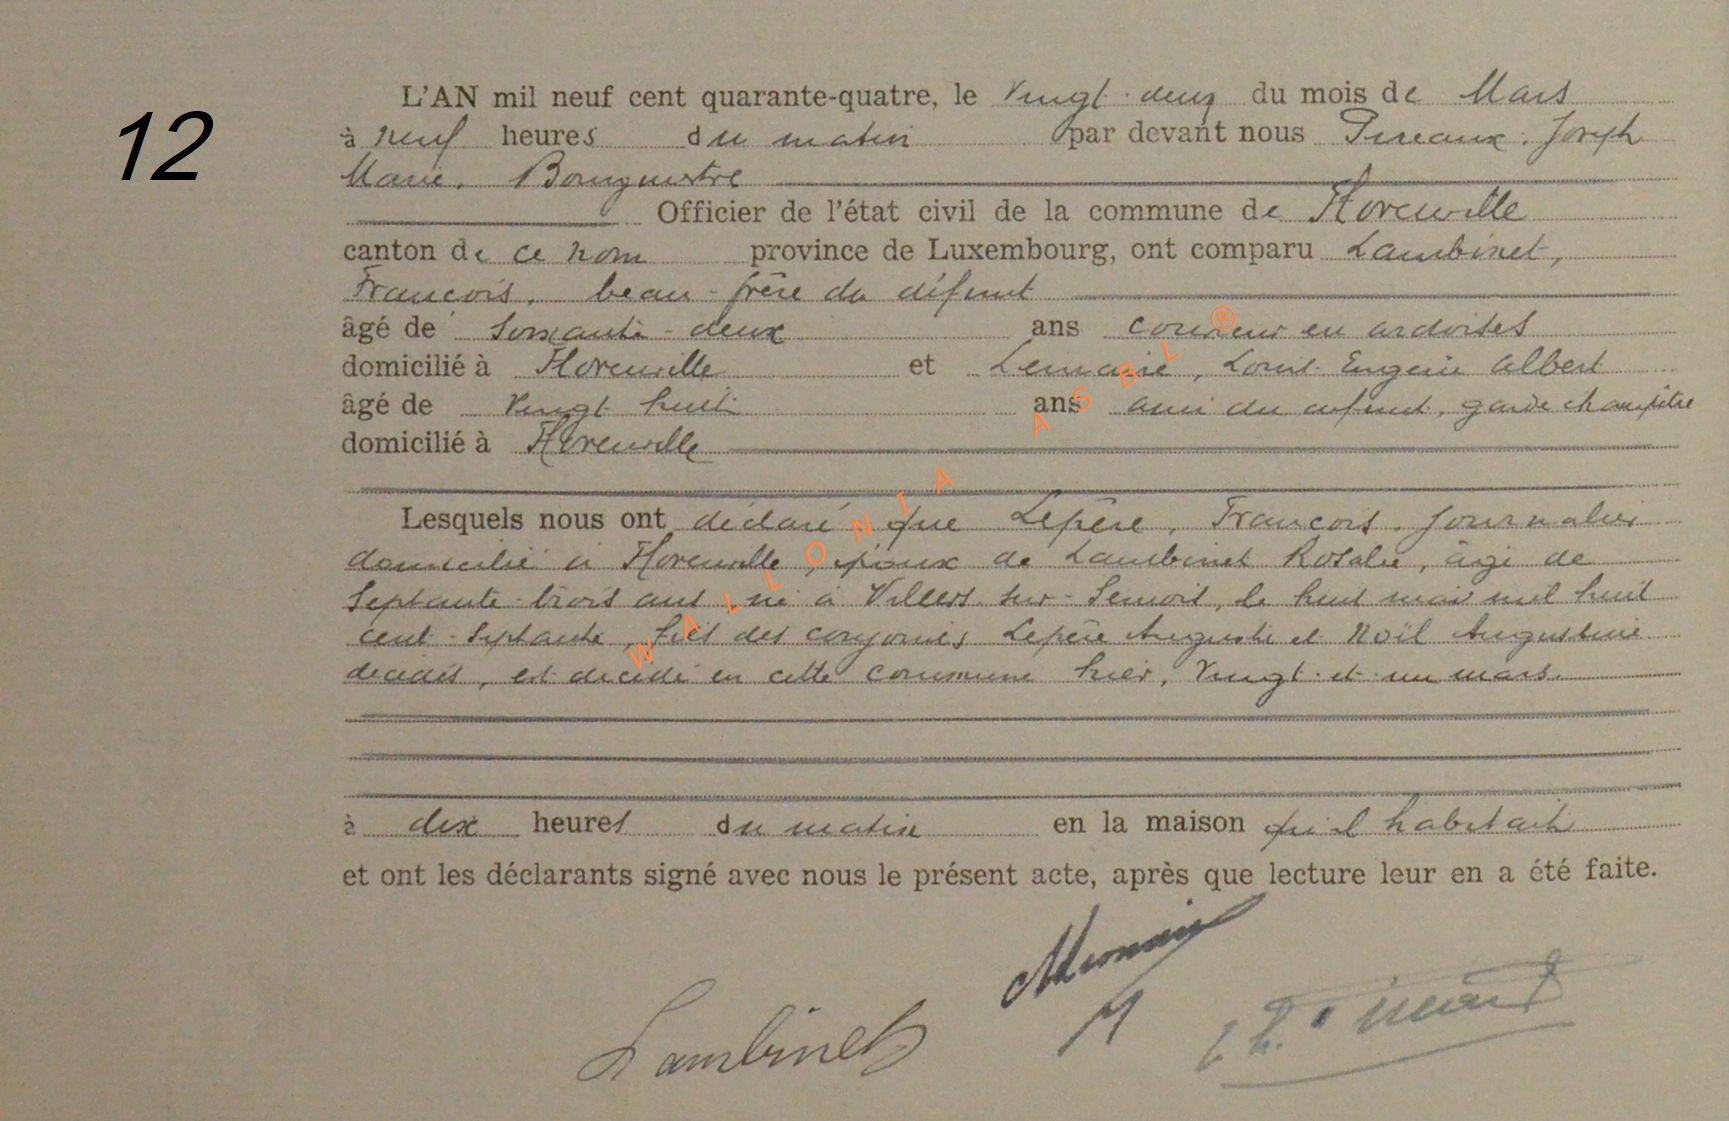 12
L'AN mil neuf cent quarante-quatre, le Vingt-deux du mois de Mars
à neuf heures du matin par devant nous Pireaux, Joseph
Marie, Bourgmestre
Officier de l'état civil de la commune de Florenville
canton de ce nom province de Luxembourg, ont comparu Lambinet,
François, beau-frère du défunt
âgé de soixante-deux ans couvreur en ardoises
domicilié à Florenville et Lemaire, Louis Eugène Albert
âgé de Vingt huit ans ami du défunt, garde champêtre
domicilié à Florenville
Lesquels nous ont déclaré que Lepère, François, Journalier
domicilié à Florenville, époux de Lambinet Rosalie, âgé de
Septante-trois ans né à Villers-sur-Semois, le huit mai mil huit
cent-septante, fils des conjoints Lepère Auguste et Noël Augustine
décédés, est décédé en cette commune hier, Vingt-et-un mars.
à dix heures du matin en la maison qu'il habitait
et ont les déclarants signé avec nous le présent acte, après que lecture leur en a été faite.
Lambinet
WALLONIA ASBL ®